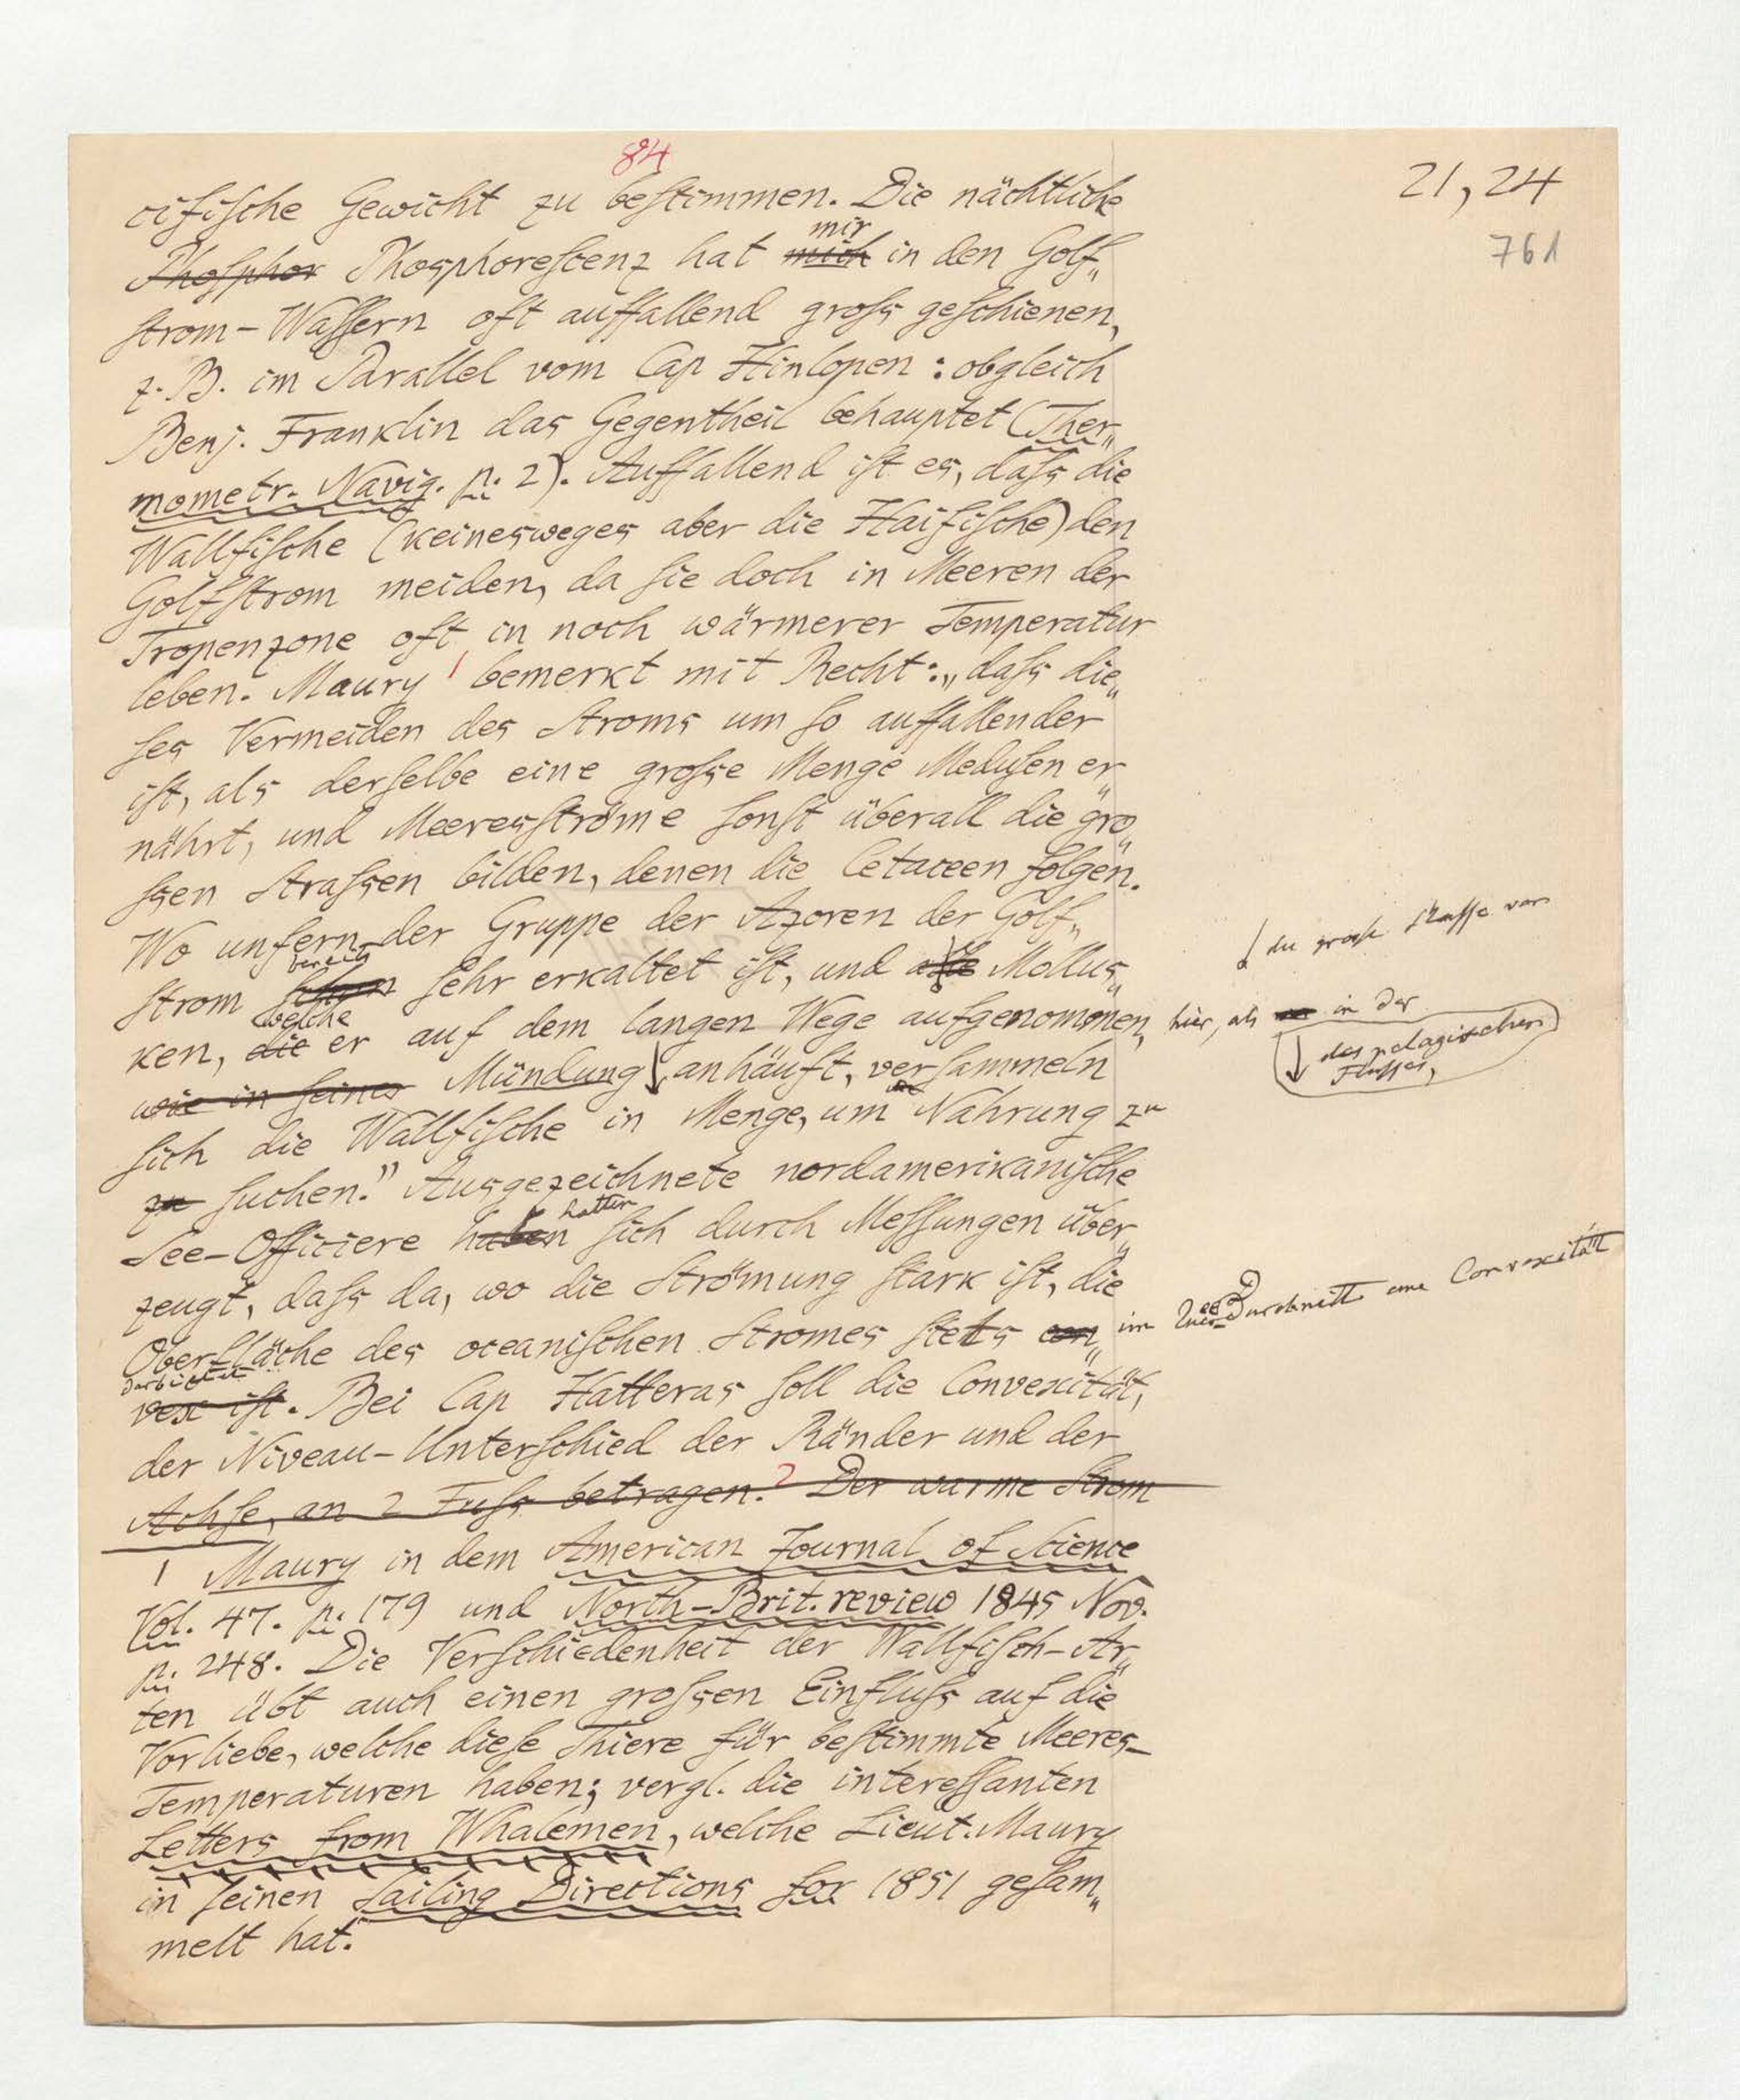 84
21, 24
761
cifische Gewicht zu bestimmen. Die nächtliche
mir
Phosphor Phosphorescenz hat mich in den Golf„
strom-Wassern oft auffallend gross geschienen,
z. B. im Parallel vom Cap Hinlopen: obgleich
Benj. Franklin das Gegentheil behauptet (Ther„
mometr. Navig. p. 2). Auffallend ist es, dass die
Wallfische (keinesweges aber die Haifische) den
Golfstrom meiden, da sie doch in Meeren der
Tropenzone oft in noch wärmerer Temperatur
leben. Maury 1 bemerkt mit Recht: „dass die„
ses Vermeiden des Stroms um so auffallender
ist, als derselbe eine grosse Menge Medusen er„
nährt, und Meeresströme sonst überall die gro„
ssen Strassen bilden, denen die Cetaceen folgen.
Wo unfern der Gruppe der Azoren der Golf„
bereits
strom schon sehr erkaltet ist, und alle Mollus„
die grosse Masse von
welche
ken, die er auf dem langen Wege aufgenommen, hier, als in der
wie in seiner Mündung anhäuft, versammeln
des pelagischen
Flusses,
sich die Wallfische in Menge, um Nahrung zu
zu suchen.” Ausgezeichnete nordamerikanische
hatten
See-Officiere haben sich durch Messungen über„
zeugt, dass da, wo die Strömung stark ist, die
Oberfläche des oceanischen Stromes stets con„ im Quer-Durchnitt eine Convexität
darbietet
vex ist. Bei Cap Hatteras soll die Convexität,
der Niveau-Unterschied der Ränder und der
Achse, an 2 Fuss betragen. 2 Der warme Strom
1 Maury in dem American Journal of Science
Vol. 47. p. 179 und North-Brit. review 1845 Nov.
p. 248. Die Verschiedenheit der Wallfisch-Ar„
ten übt auch einen grossen Einfluss auf die
Vorliebe, welche diese Thiere für bestimmte Meeres-
Temperaturen haben; vergl. die interessanten
Letters from Whalemen, welche Lieut. Maury
in seinen Sailing Directions for 1851 gesam„
melt hat.